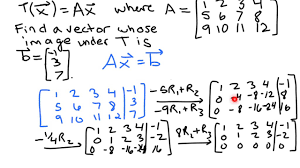 T(x⃗) = Ax⃗ where A = [1 2 3 4; 5 6 7 8; 9 10 11 12]
Find a vector whose
image under T is
b⃗ = [-1; 3; 7] Ax⃗ = b⃗
[1 2 3 4 | -1; 5 6 7 8 | 3; 9 10 11 12 | 7] -5R₁+R₂ -9R₁+R₃ [1 2 3 4 | -1; 0 -4 -8 -12 | 8; 0 -8 -16 -24 | 16]
-1/4R₂ [1 2 3 4 | -1; 0 1 2 3 | -2; 0 -8 -16 -24 | 16] 8R₂+R₃ [1 2 3 4 | -1; 0 1 2 3 | -2; 0 0 0 0 | 0]